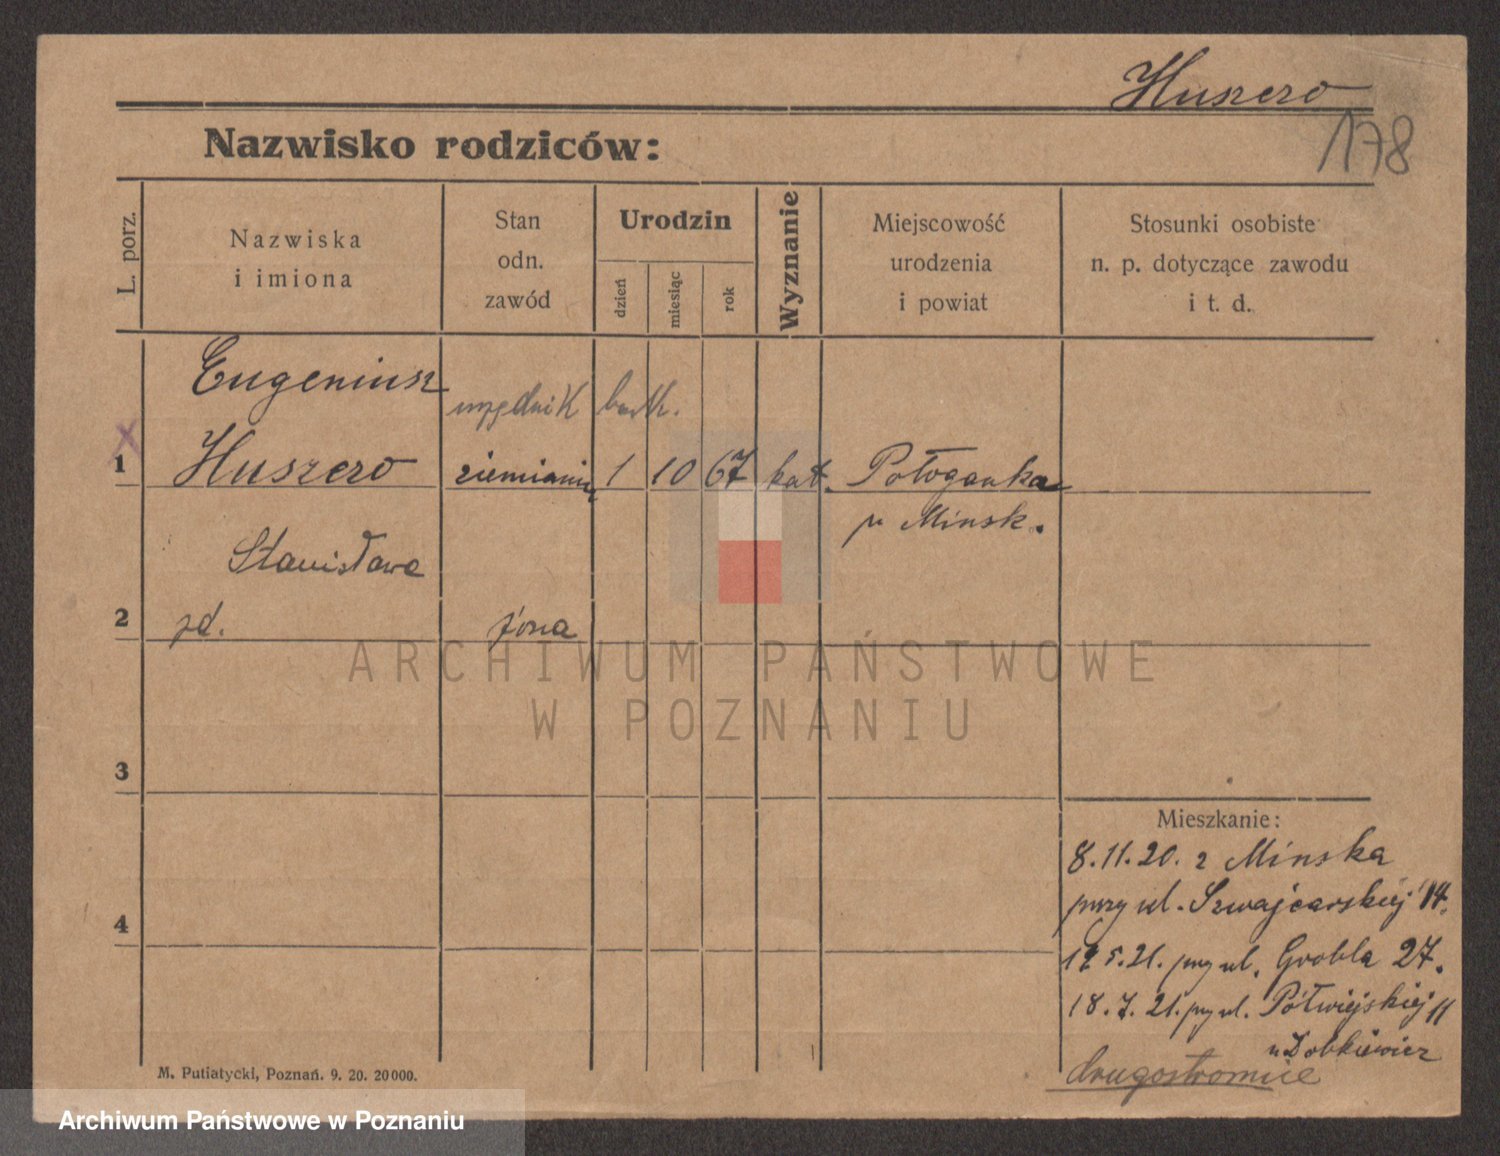 Huszczo
178
Nazwisko rodziców:
L. porz.
Nazwiska
i imiona
Stan
odn.
zawód
Urodzin
dzień
miesiąc
rok
Wyznanie
Miejscowość
urodzenia
i powiat
Stosunki osobiste
n. p. dotyczące zawodu
i t. d.
Eugeniusz
urzędnik bank.
1 Huszczo ziemianin 1 10 67 kat. Połoganka
p. Minsk.
Stanisława
2 żona
3
4
Mieszkanie:
8.11.20. z Minska
przy ul. Szwajcarskiej 14.
5.21. przy ul. Grobla 27.
18.7.21. przy ul. Półwiejskiej 11
u Dobkiewicz
drugostronnie
M. Putiatycki, Poznań. 9. 20. 20000.
ARCHIWUM PAŃSTWOWE
W POZNANIU
Archiwum Państwowe w Poznaniu